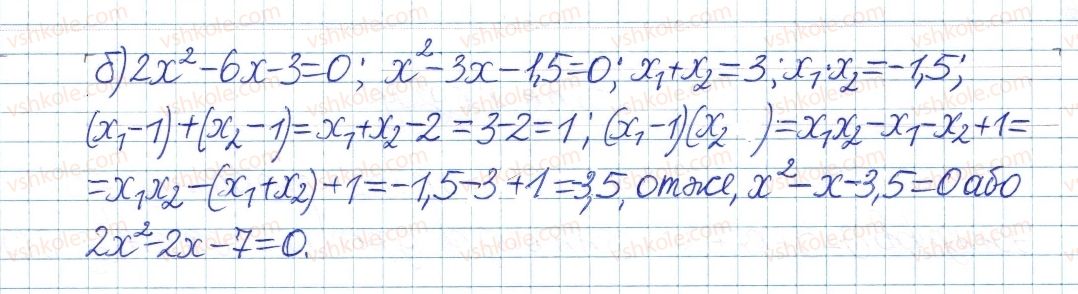 б) 2x² - 6x - 3 = 0; x² - 3x - 1,5 = 0; x₁ + x₂ = 3; x₁·x₂ = -1,5;
(x₁ - 1) + (x₂ - 1) = x₁ + x₂ - 2 = 3 - 2 = 1; (x₁ - 1)(x₂ ) = x₁x₂ - x₁ - x₂ + 1 =
= x₁x₂ - (x₁ + x₂) + 1 = -1,5 - 3 + 1 = 3,5, отже, x² - x - 3,5 = 0 або
2x² - 2x - 7 = 0.